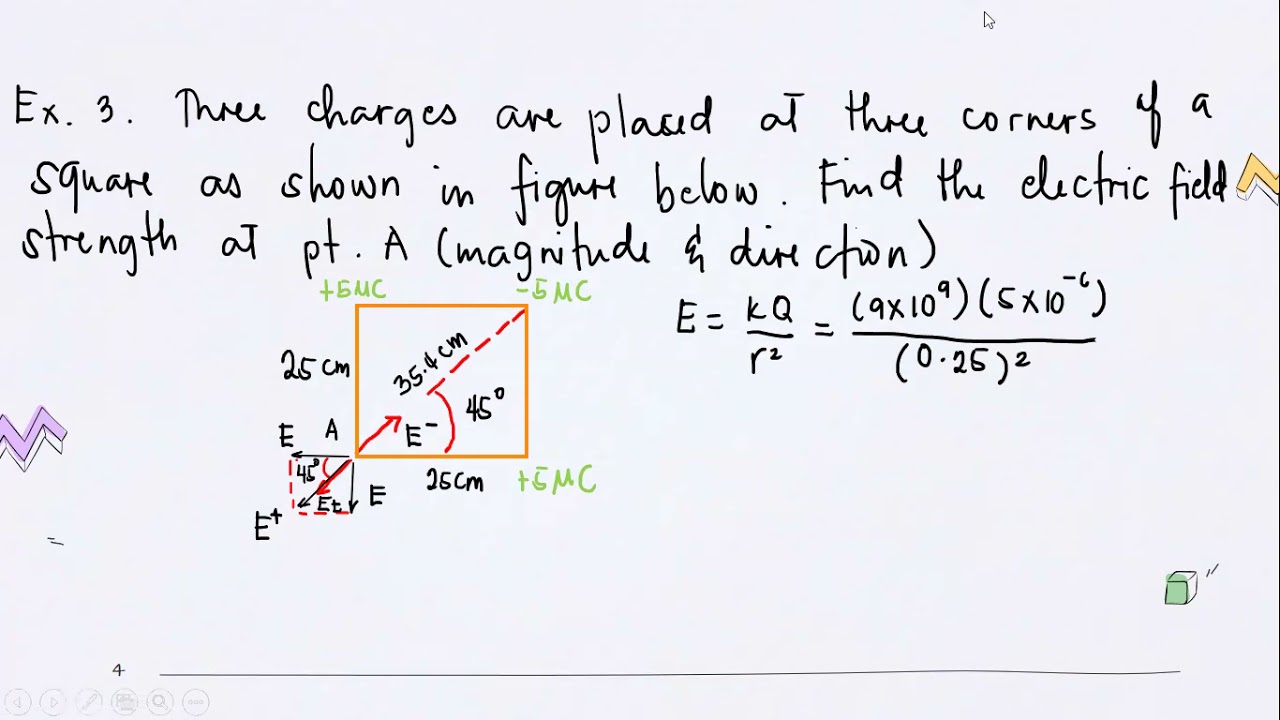 Ex. 3. Three charges are placed at three corners of a
square as shown in figure below. Find the electric field
strength at pt. A (magnitude & direction)
+5MC -5MC
E = kQ/r² = (9x10⁹)(5x10⁻⁶)/(0.25)²
25cm
35.4cm
45°
E A E⁻
45°
25cm +5MC
Et E
E⁺
4